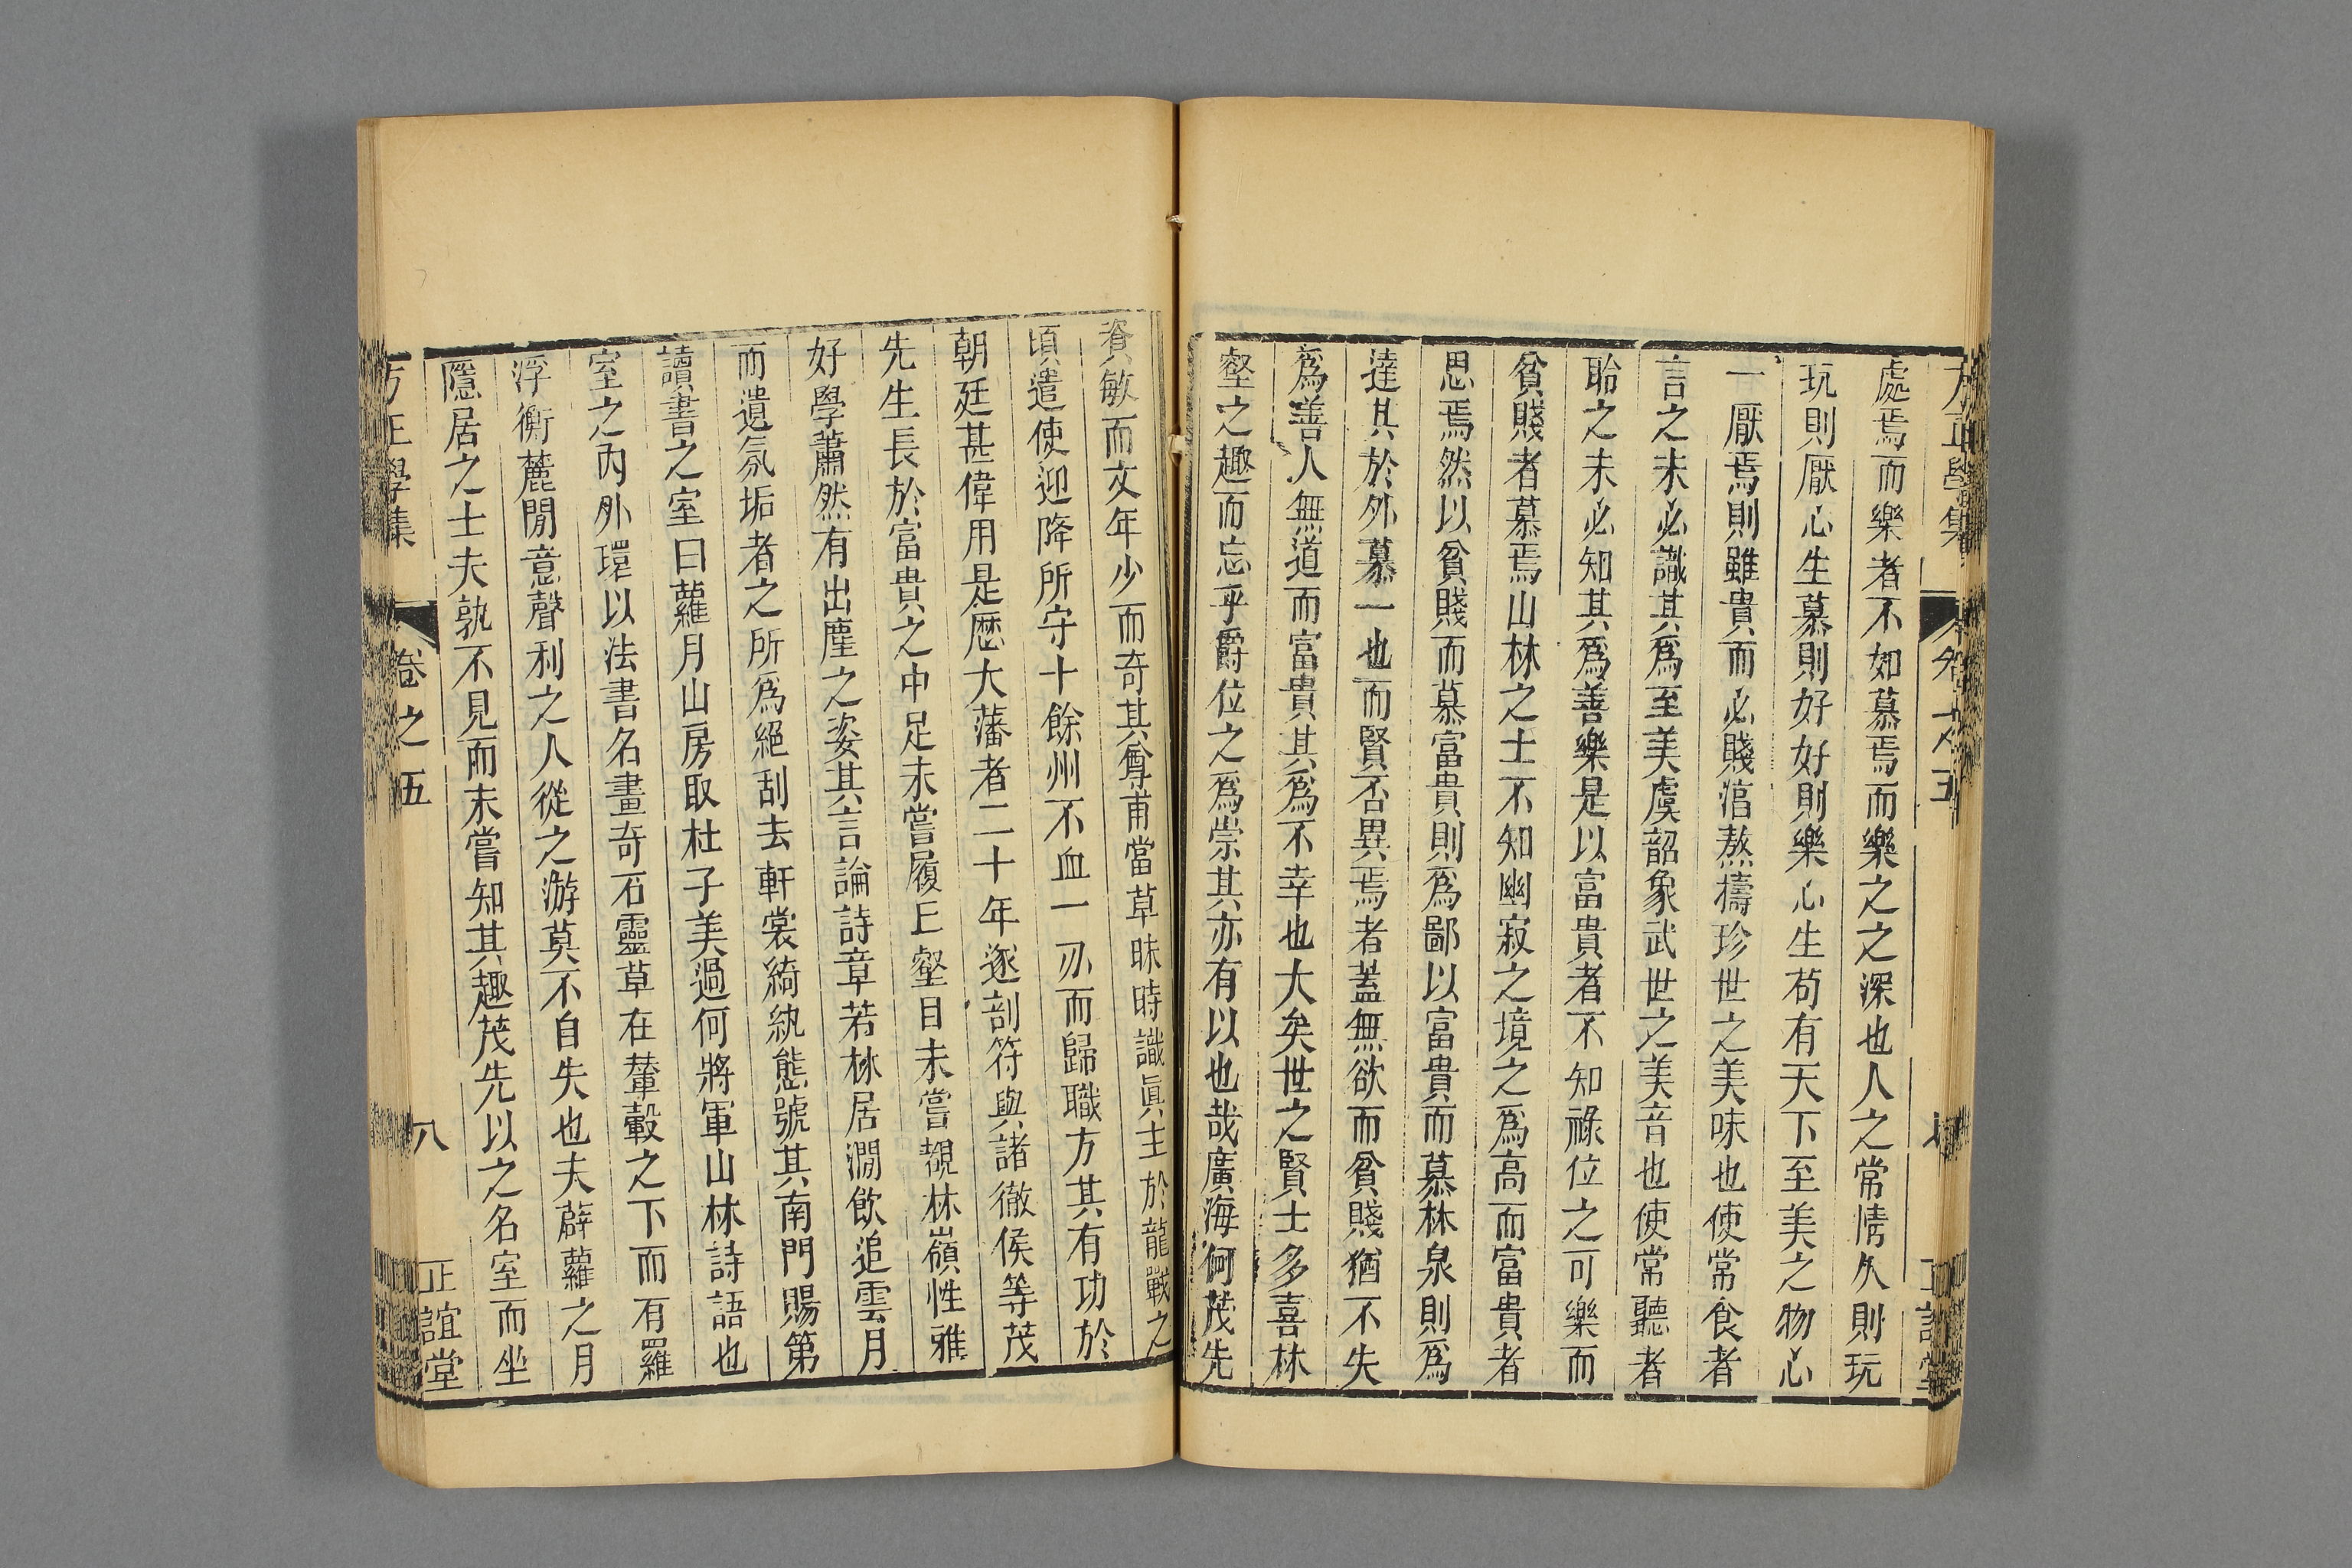 處焉而樂者不如慕焉而樂之之深也人之常情久則玩
玩則厭心生慕則好好則樂心生苟有天下至美之物心
一厭焉則雖貴而必賤涫熬擣珍世之美味也使常食者
言之未必識其爲至美虞韶象武世之美音也使常聽者
聆之未必知其爲善樂是以富貴者不知祿位之可樂而
貧賤者慕焉山林之士不知幽寂之境之爲高而富貴者
思焉然以貧賤而慕富貴則爲鄙以富貴而慕林泉則爲
達其於外慕一也而賢否異焉者蓋無欲而貧賤猶不失
爲善人無道而富貴其爲不幸也大矣世之賢士多喜林
壑之趣而忘乎爵位之爲崇其亦有以也哉廣海何茂先
資敏而文年少而奇其尊甫當草昧時識眞主於龍戰之
頃遣使迎降所守十餘州不血一刃而歸職方其有功於
朝廷甚偉用是歷大藩者二十年逐剖符與諸徹侯等茂
先生長於富貴之中足未嘗履丘壑目未嘗覩林嶺性雅
好學蕭然有出塵之姿其言論詩章若林居澗飲追雲月
而遺氛垢者之所爲絕刮去軒裳綺紈態號其南門賜第
讀書之室曰蘿月山房取杜子美過何將軍山林詩語也
室之內外環以法書名畫奇石靈草在輦轂之下而有羅
浮衡麓閒意聲利之人從之游莫不自失也夫薜蘿之月
隱居之士夫孰不見而未嘗知其趣茂先以之名室而坐
方正學集 卷之五 八 正誼堂